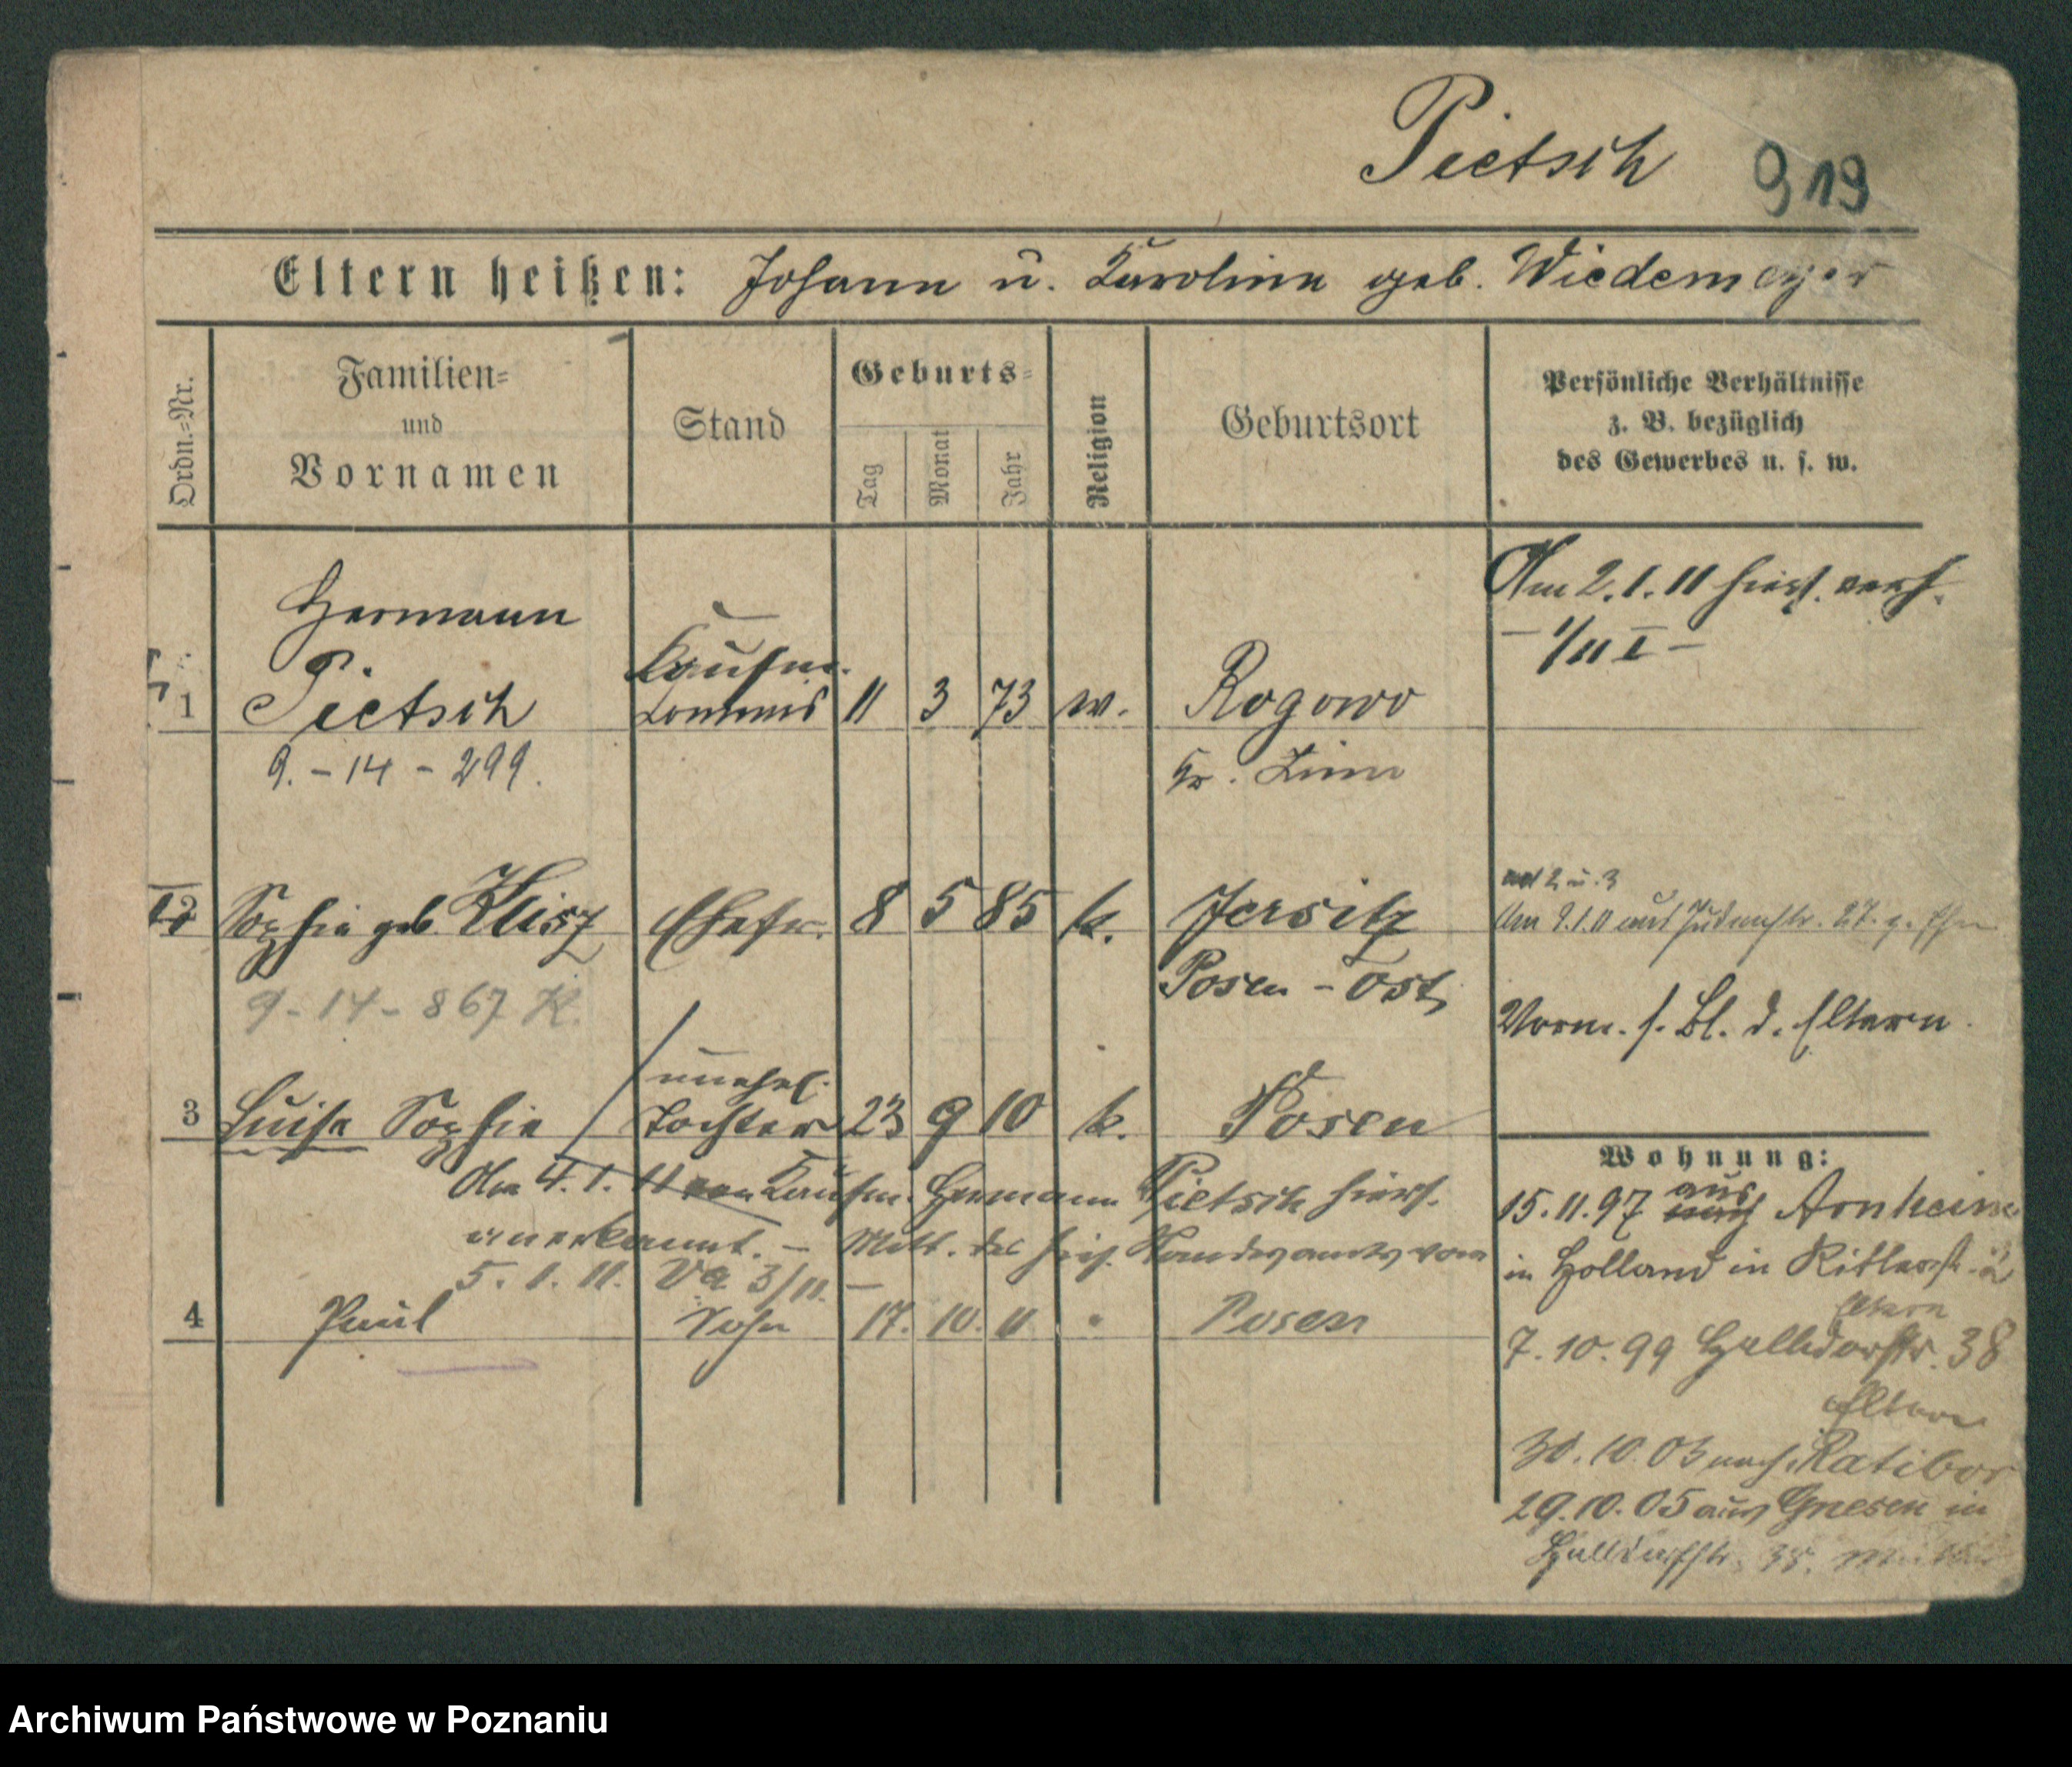 Pietsch 919
Eltern heißen: Johann u. Karolina geb. Wiedemeyer
Ordn.=Nr.
Familien=
und
Vornamen
Stand
Geburts=
Tag
Monat
Jahr
Religion
Geburtsort
Persönliche Verhältnisse
z. B. bezüglich
des Gewerbes u. s. w.
Hermann
1 Pietsch
Kaufm.
Commis 11 3 73 w. Rogowo
9. - 14 - 299.
Kr. Znin
Am 2.1.11 hies. verh.
- 1/11 I -
2 Sophie geb. Klisz Ehefr. 8 5 85 k. Jersitz
Posen - Ost
9 - 14 - 867 K.
ad 2 u. 3
Am 9.1.11 aus Judenstr. 27. z. Ehm
Vorm. s. Bl. d. Eltern
3 Luise Sophie
unehel.
Tochter 23 9 10 k. Posen
Am 4.1.11 von Kaufm. Hermann Pietsch hiers.
anerkannt. - Mitt. des hies. Standesamts vom
5. 1. 11. Va 3/11. -
4 Paul Sohn 17. 10. 11 Posen
Wohnung:
15.11.97 aus Arnheim
in Holland in Ritterstr. 2
Eltern
7.10.99 Halldorfstr. 38
Eltern
30.10.03 nach Ratibor
29.10.05 aus Gnesen in
Halldorfstr. 38. Mutter
Archiwum Państwowe w Poznaniu